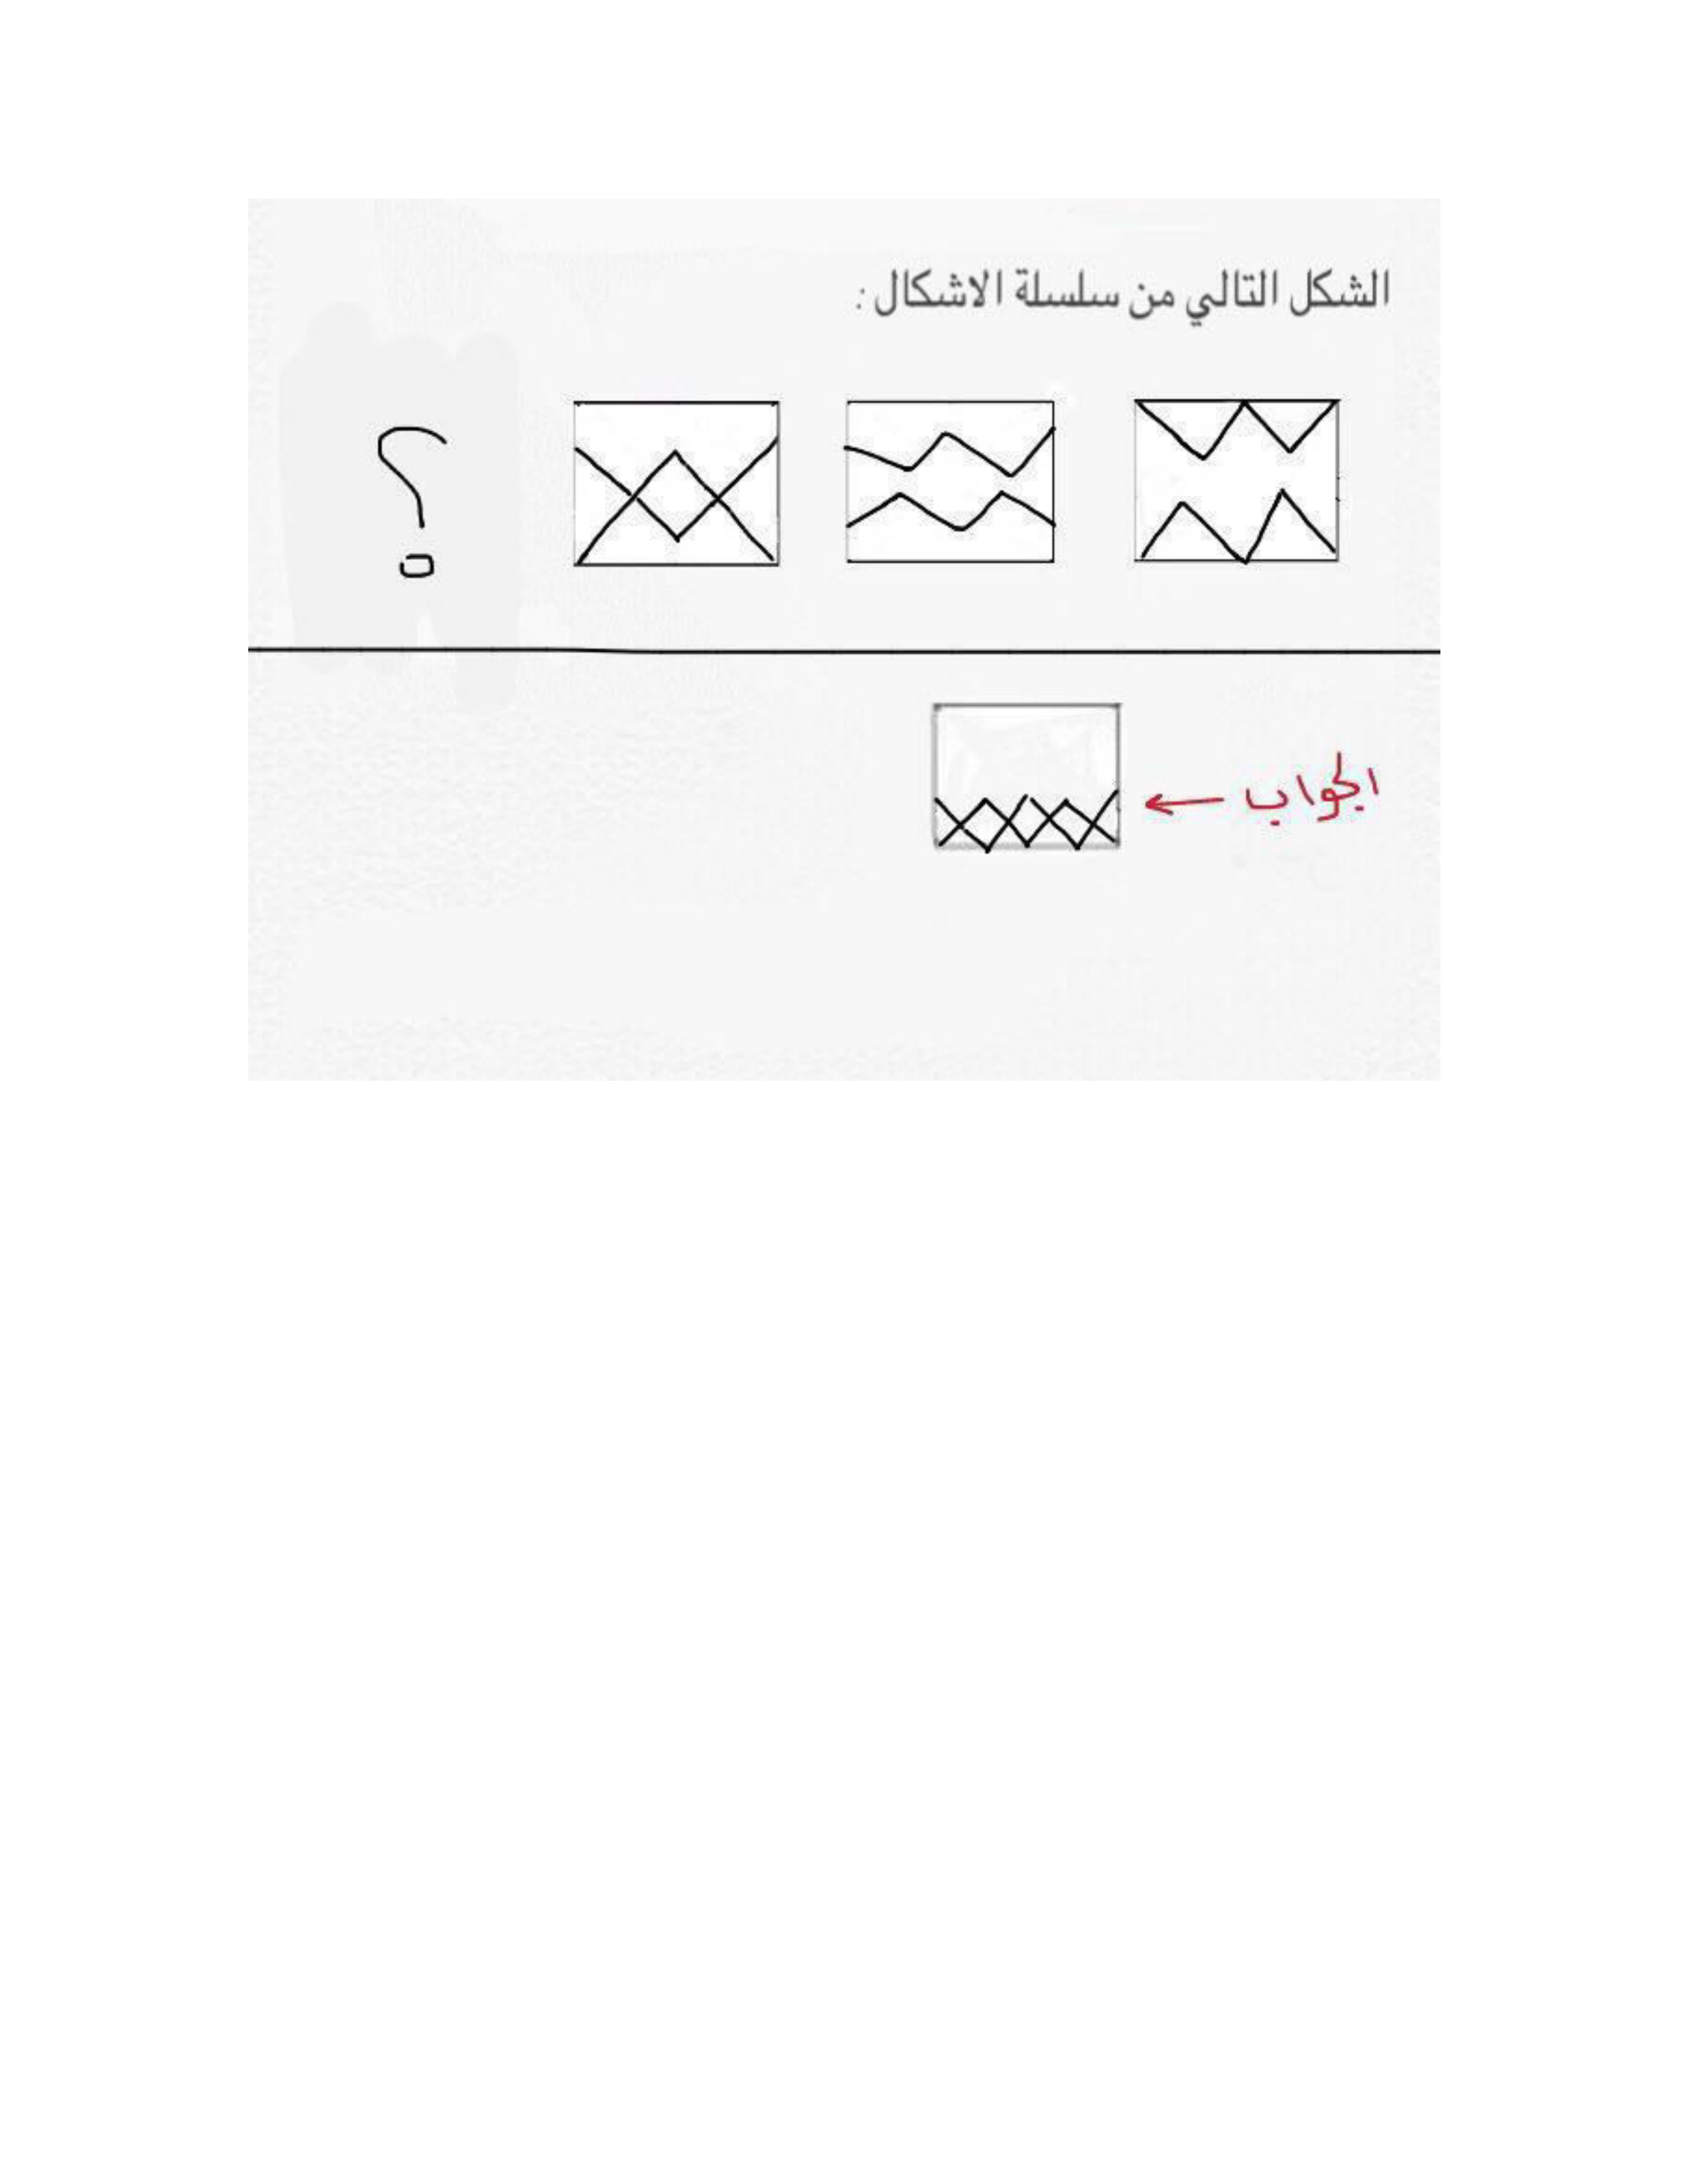 الشكل التالي من سلسلة الاشكال :
؟
الجواب ←